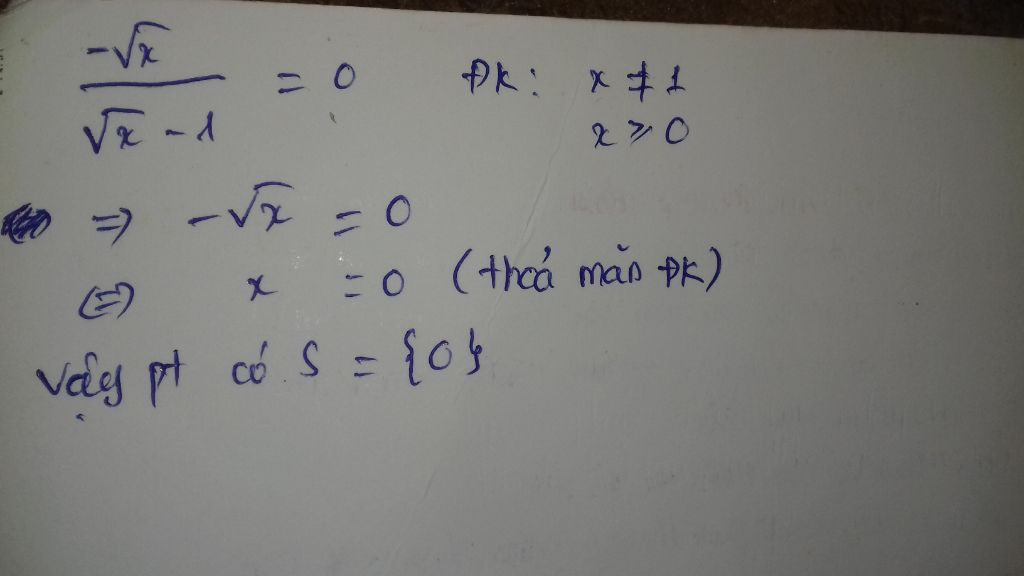 -√x / (√x - 1) = 0 ĐK: x ≠ 1
x ⩾ 0
=> -√x = 0
(=) x = 0 (thoả mãn ĐK)
vậy pt có S = {0}